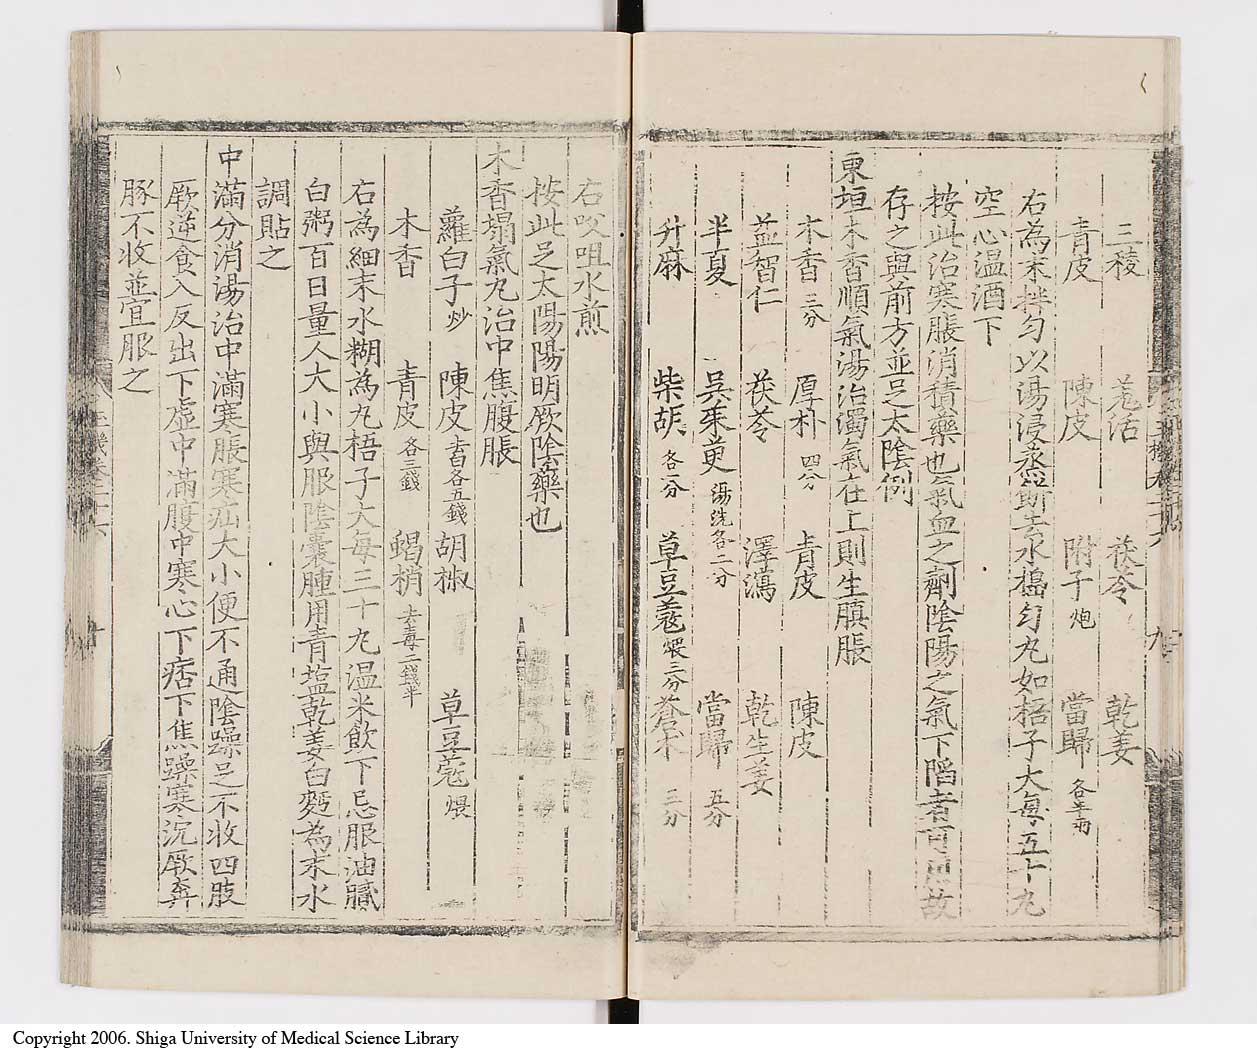 三稜 羗活 茯苓 乾姜
青皮 陳皮 附子炮 當歸各半兩
右為末拌匀以湯浸蒸餅去水搗匀丸如梧子大每五十丸
空心温酒下
按此治寒脹消積藥也氣血之劑陰陽之氣下陷者可用故
存之與前方並足太陰例
東垣木香順氣湯治濁氣在上則生䐜脹
木香三分 厚朴四分 青皮 陳皮
益智仁 茯苓 澤瀉 乾生姜
半夏 吳茱萸湯洗各二分 當歸五分
升麻 柴胡各一分 草豆蔻煨三分 蒼术三分
右㕮咀水煎
按此足太陽陽明厥陰藥也
木香塌氣丸治中焦腹脹
蘿白子炒 陳皮去白各五錢 胡椒 草豆蔻煨
木香 青皮各三錢 蝎梢去毒二錢半
右為細末水糊為丸梧子大每三十丸温米飲下忌服油膩
白粥百日量人大小與服陰囊腫用青塩乾姜白麪為末水
調貼之
中滿分消湯治中滿寒脹寒疝大小便不通陰躁足不收四肢
厥逆食入反出下虛中滿腹中寒心下痞下焦躁寒沉厥奔
豚不收並宜服之
Copyright 2006. Shiga University of Medical Science Library